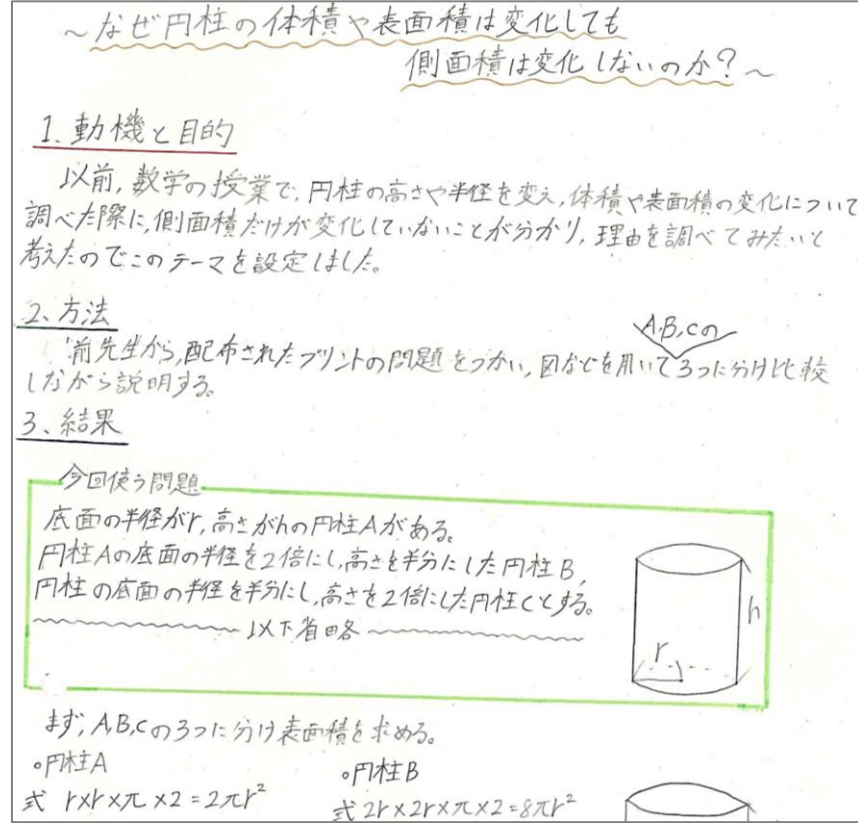 ~なぜ円柱の体積や表面積は変化しても
側面積は変化しないのか?~
1、動機と目的
以前,数学の授業で,円柱の高さや半径を変え,体積や表面積の変化について
調べた際に,側面積だけが変化していないことが分かり,理由を調べてみたいと
考えたのでこのテーマを設定しました。
2、方法
前先生から,配布されたプリントの問題をつかい,図などを用いてA,B,Cの3つに分け比較
しながら説明する。
3、結果
今回使う問題
底面の半径がr,高さがhの円柱Aがある。
円柱Aの底面の半径を2倍にし,高さを半分にした円柱B,
円柱の底面の半径を半分にし,高さを2倍にした円柱Cとする。
以下省略
h
r
まず,A,B,Cの3つに分け表面積を求める。
◦円柱A ◦円柱B
式 r×r×π×2=2πr² 式 2r×2r×π×2=8πr²